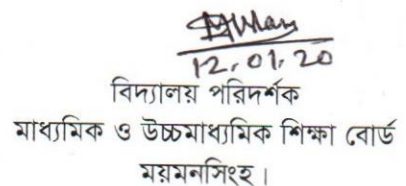 12.01.20
বিদ্যালয় পরিদর্শক
মাধ্যমিক ও উচ্চমাধ্যমিক শিক্ষা বোর্ড
ময়মনসিংহ।